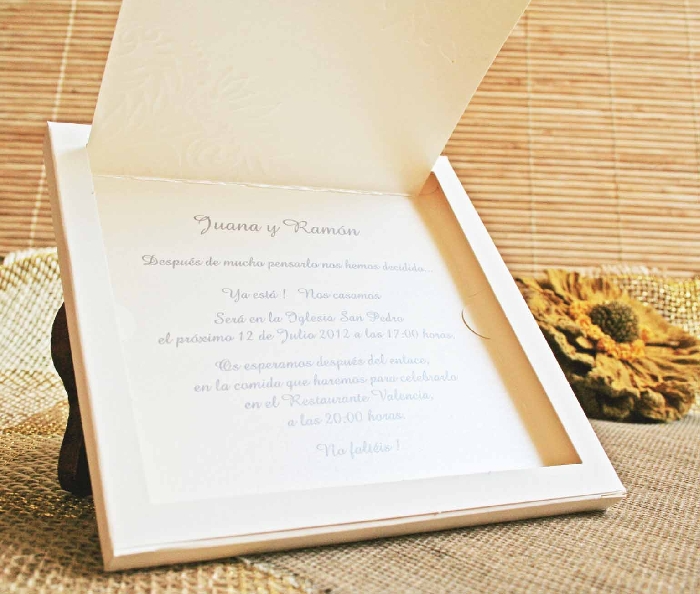 Juana y Ramón
Después de mucho pensarlo nos hemos decidido...
Ya está ! Nos casamos
Será en la Iglesia San Pedro
el próximo 12 de Julio 2012 a las 17:00 horas.
Os esperamos después del enlace,
en la comida que haremos para celebrarlo
en el Restaurante Valencia,
a las 20:00 horas.
No faltéis !